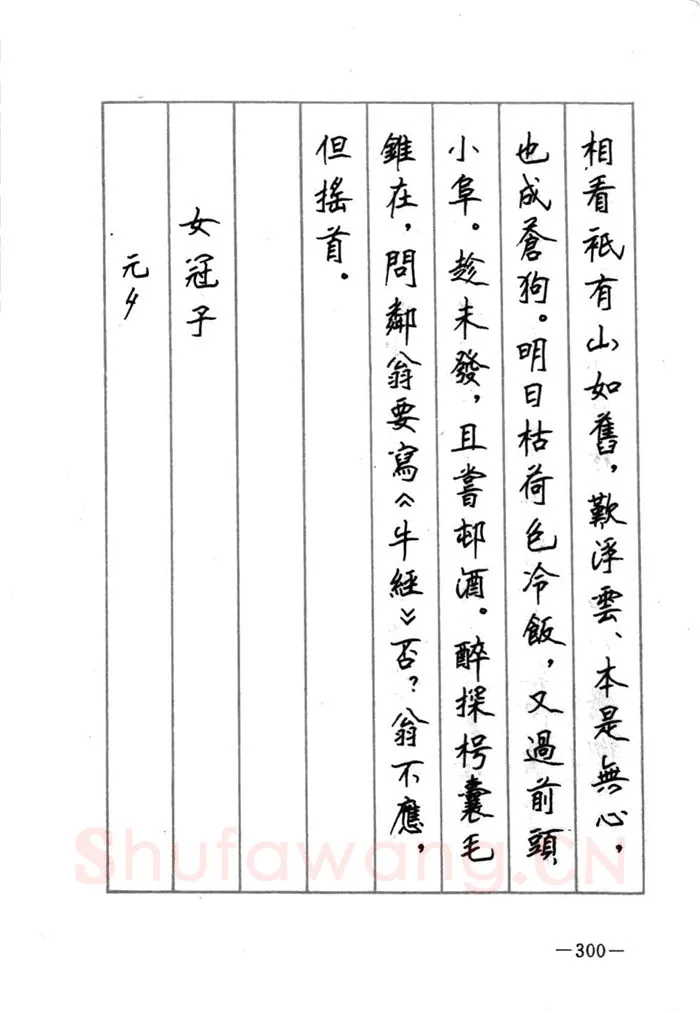 相看衹有山如舊，歎浮雲、本是無心，
也成蒼狗。明日枯荷色冷飯，又過前頭
小阜。趁未發，且嘗邨酒。醉探枵囊毛
錐在，問鄰翁要寫《牛經》否？翁不應，
但搖首。
女冠子
元夕
Shufawang.CN
—300—